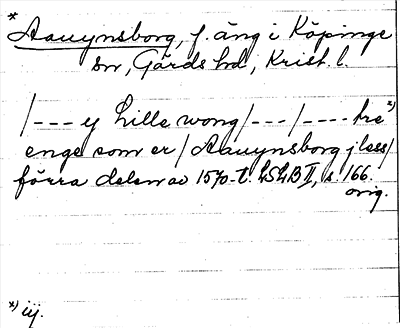 * Aauynsborg, f. äng i Köpinge
sn, Gärds hd, Krist. l.
/--- y hille wong/---/---- tre *)
enge som er / Aauynsborg j less/
förra delen av 1570-t. LSLB II, s. 166.
orig.
*) iij.